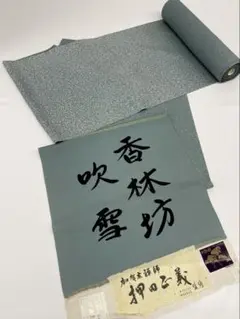 香林坊
吹雪
加賀友禅師
押田正義